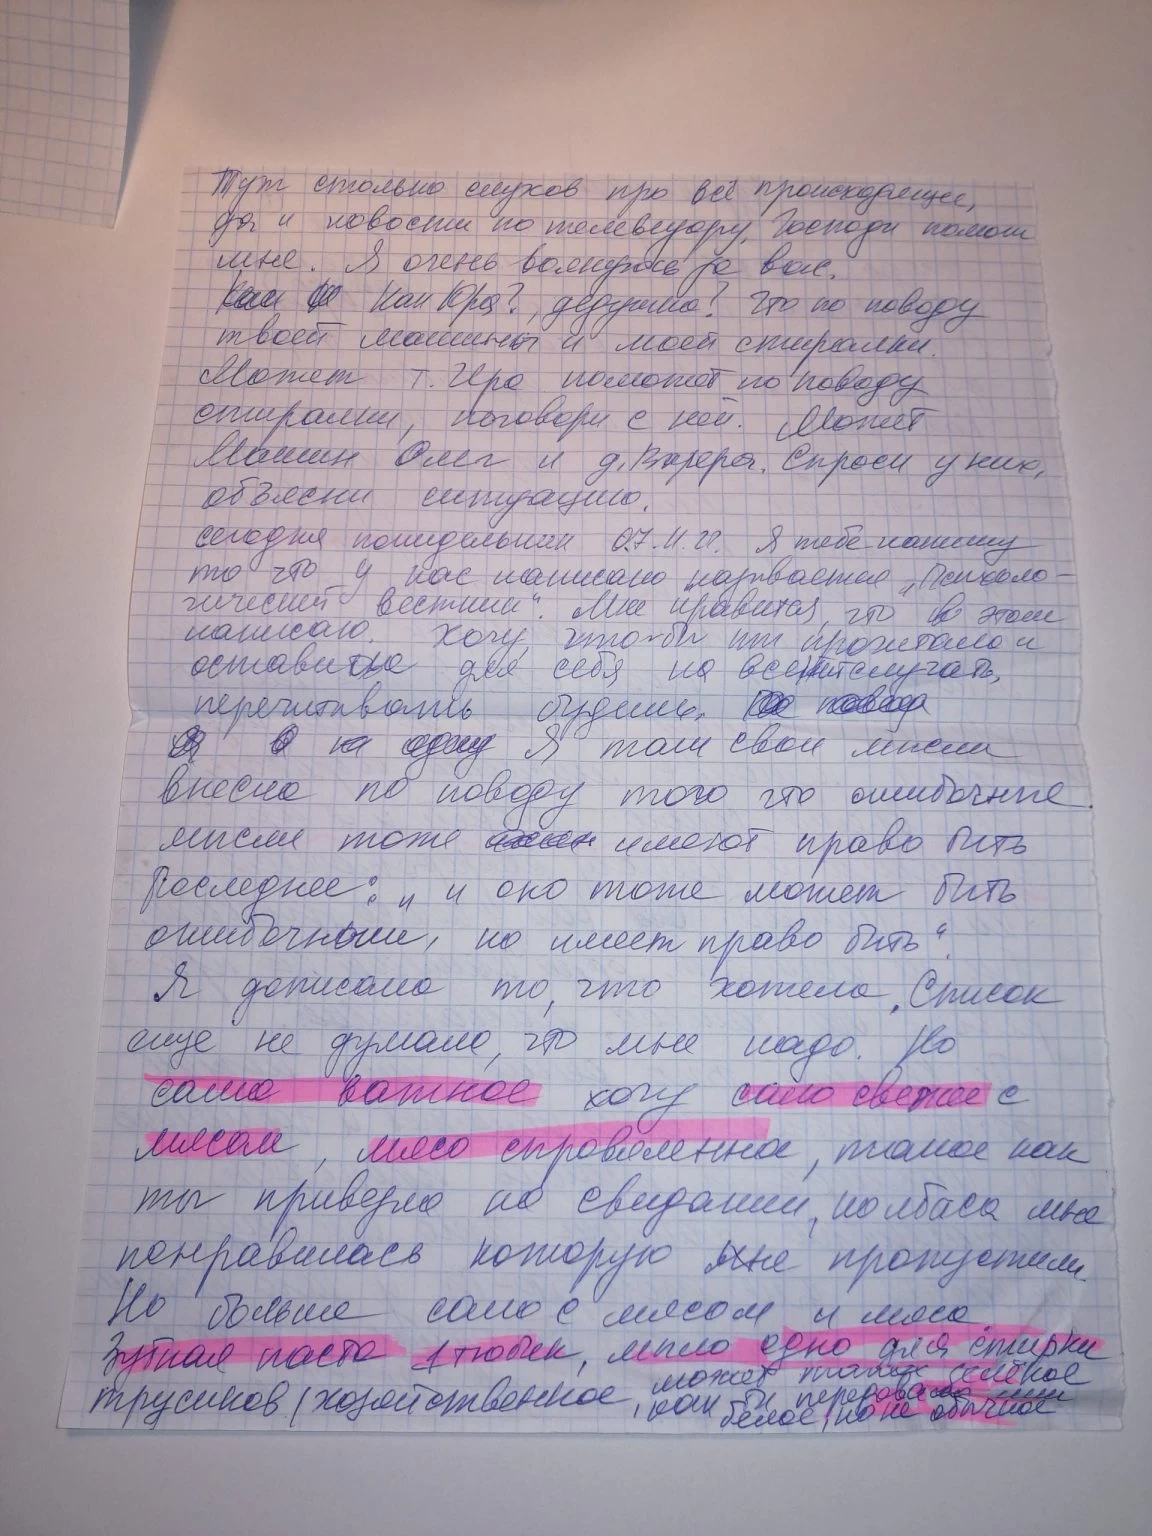 Тут столько слухов про всё происходящее,
да и новости по телевизору. Господи помоги
мне. Я очень волнуюсь за вас.
Как Юра?, дедушка? Что по поводу
твоей машины и моей стиралки.
Может т. Ира поможет по поводу
стиралки, поговори с ней. Может
Машин Олег и д. Валера. Спроси у них,
объясни ситуацию.
сегодня понидельник 07.11.22. Я тебе напишу
то что у нас написано называется „Психоло-
гический вестник". Мне нравится, что в этом
написано. Хочу, что-бы ты прочитала и
оставила для себя на всякий случать,
перечитывать будешь.
Я там свои мысли
внесла по поводу того что ошибочные
мысли тоже имеют право быть
Последнее: „и оно тоже может быть
ошибочным, но имеет право быть".
Я дописала то, что хотела. Список
еще не думала, что мне надо. Но
самое важное хочу сало свежее с
мясом, мясо справяленное, такое как
ты привезла на свидании, колбаса мне
понравилась которую не пропустили.
Но больше сало с мясом и мясо
Зубная паста 1 тюбик, мыло одно для стирки
трусиков (хозяйственное,
может такое зелёное
как бы
белое, но не обычное